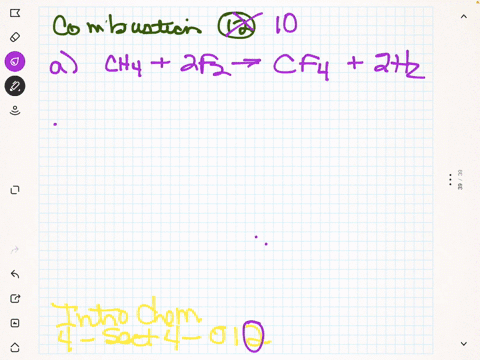 Combustion 12 10
a) CH4 + 2F2 → CF4 + 2H2
39 / 39
Intro Chem
4 - Sect 4 - 012